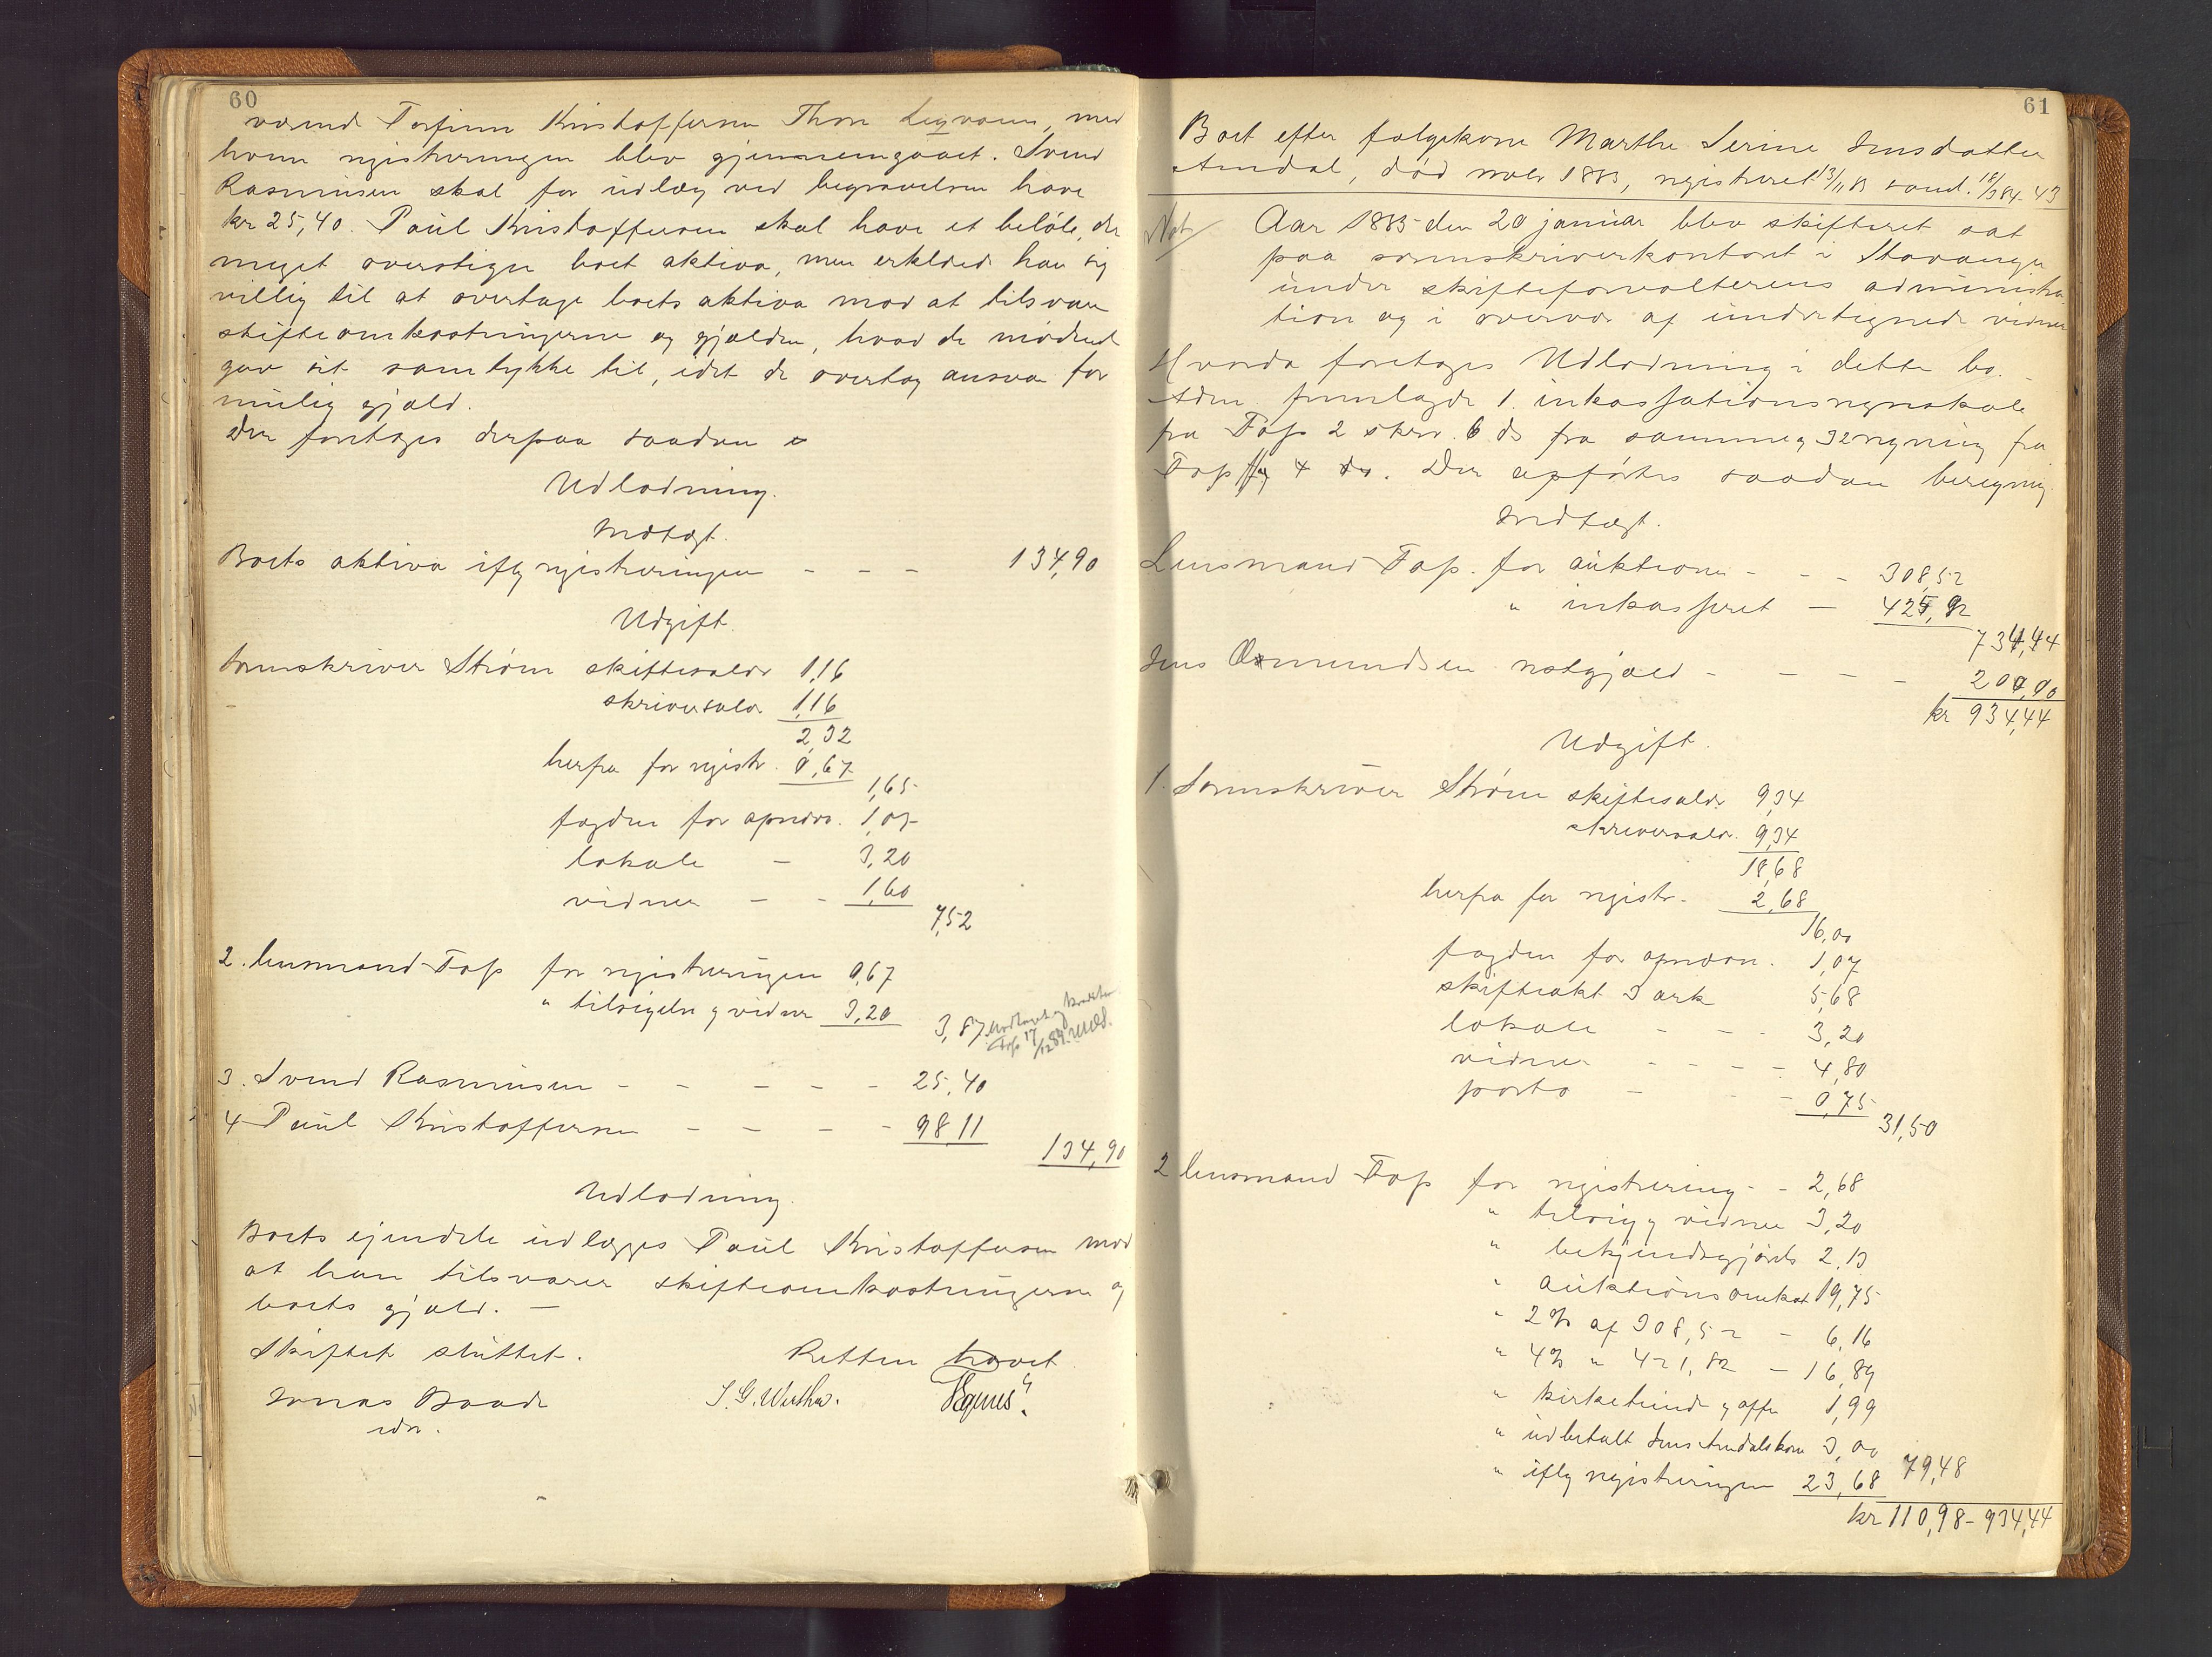 60
værende Torfinn Kristoffersen Thon Legvorin, med
hvem registreringen blev gjennemgaaet. Svend
Rasmussen skal for udlæg ved begravelsen have
kr 25,40. Paul Kristoffersen skal have et beløb, der
meget overstiger boet aktiva, men erklærede han sig
villig til at overtage boets aktiva mod at tilsvare
skifteomkostningerne og gjælden, hvad de mødende
gav sit samtykke til, idet de overtog ansvar for
mulig gjæld.
Der foretoges derpaa saadan
Udlodning.
Indtægt.
Boets aktiva iflg registreringen - - - 134,90
Udgift.
Sorenskriver Strøm skiftesalær 1,16
skriversalær 1,16
2,32
herfra for registr. 0,67
1,65
fogden for opnævn. 1,07
lokale - 3,20
vidner - - 1,60
7,52
2. lensmand Tøs for registreringen 0,67
" tilsigelse og vidner 3,20
3,87
3. Svend Rasmussen - - - - - 25,40
4 Paul Kristoffersen - - - - 98,11
134,90
Udlodning.
Boets ejendele udlægges Paul Kristoffersen mod
at han tilsvarer skifteomkostningerne og
boets gjæld. -
Skiftet sluttet. Retten hævet
Jonas Baade S. G. Werther.
edsv.
61
Boet efter følgekone Marthe Serine Jensdatter
Amdal, død novbr 1883, registreret 13/11 83 saml. 18/3 84 - 43
Aar 1885 den 20 januar blev skifteret sat
paa sorenskriverkontoret i Stavanger
under skifteforvalterens administra-
tion og i overvær af undertegnede vidner
Hvorda foretoges Udlodning i dette bo.
Adm. fremlagde 1. inkassationsregnskab
fra Tøs 2 skr. 6 ds fra samme og 3 regning fra
Tøs. Der opførtes saadan beregning
Indtægt.
Lensmand Tøs. for auktion - - - 308,52
" inkasseret - 425,92
734,44
Jens Osmundsen restgjæld - - - - 200,00
kr 934,44
Udgift.
1. Sorenskriver Strøm skiftesalær 9,34
skriversalær. 9,34
18,68
herfra for registr. - 2,68
16,00
fogden for opnævn. 1,07
skifteakt 3 ark 5,68
lokale - - 3,20
vidner - - - - 4,80
porto - - - 0,75
31,50
2 lensmand Tøs for registrering - - 2,68
" tilsig og vidner 3,20
" bekjendtgjørels 2,13
" auktionsomkost 19,75
" 2% af 308,52 - 6,16
" 4% " 421,82 - 16,89
" kirketiende og offer 1,99
" udbetalt Jens Amdals kone 3,00
" iflg registreringen 23,68 79,48
kr 110,98 - 934,44